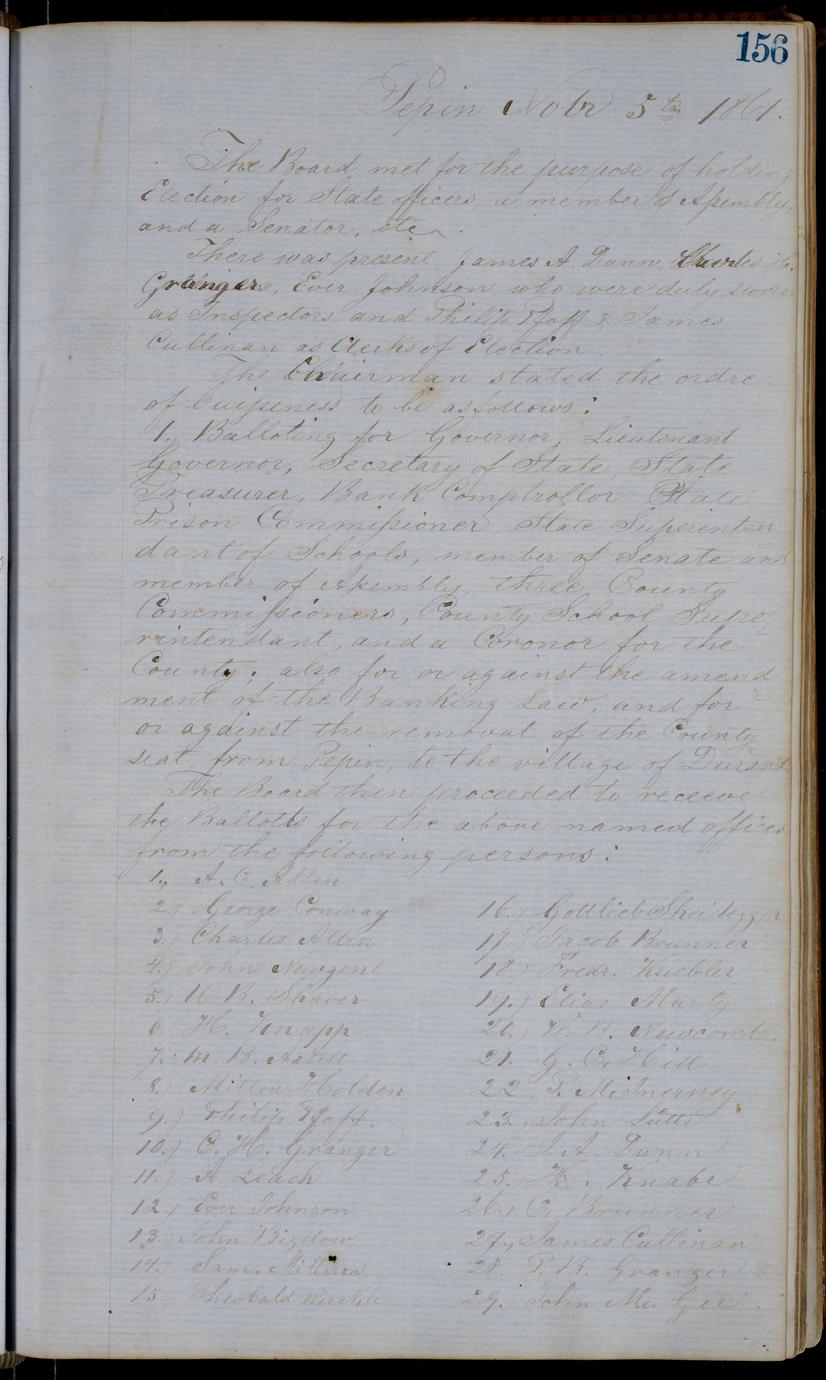 156
Pepin Nobr 5th 1861.
The Board met for the purpose of holding
Election for State officers a member of Assembly,
and a Senator, etc.
There was present James A. Dunn, Charles H.
Grangers, Ever Johnson who were duly sworn
as Inspectors and Philip Pfaff & James
Cullinan as Clerks of Election.
The Chairman stated the ordre
of buisseness to be as follows:
1., Balloting for Governor, Lieutenant
Governor, Secretary of State, State
Treasurer, Bank Comptrollor State
Prison Commissioner, State Superinten
dant of Schools, member of Senate and
member of Assembly, three County
Commissioners, County School Supe-
rintendant, and a Coronor for the
County; also for or against the amend
ment of the Banking Law, and for
or against the removal of the County
seat, from Pepin, to the village of Durand
The Board then proceeded to receeve
the Ballotts for the above named offices
from the following persons:
1., A. C. Allen
2.) George Conway
3.) Charles Allen
4.) John Newgent
5.) U. R. Shaver
6 H. Knapp
7. M. B. Axtell
8.) Milton Holden
9.) Philip Pfaff.
10.) C. H. Granger
11.) A. Leach
12.) Ever Johnson
13.) John Bigelow
14) Sam. Milliron
15 Theobald
16.) Gottlieb
17.) Jacob Brunner
18.) Fredr. Kuebler
19.) Elias Marty
20.) W. B. Newcomb.
21. G. C. Hill
22. P. McInerney
23. John Lutte
24. J. A. Dunn
25. H. Knabe
26.) C. Brunner
27., James Cullinan
28. P. R. Granger
29. John Mc. Gee.